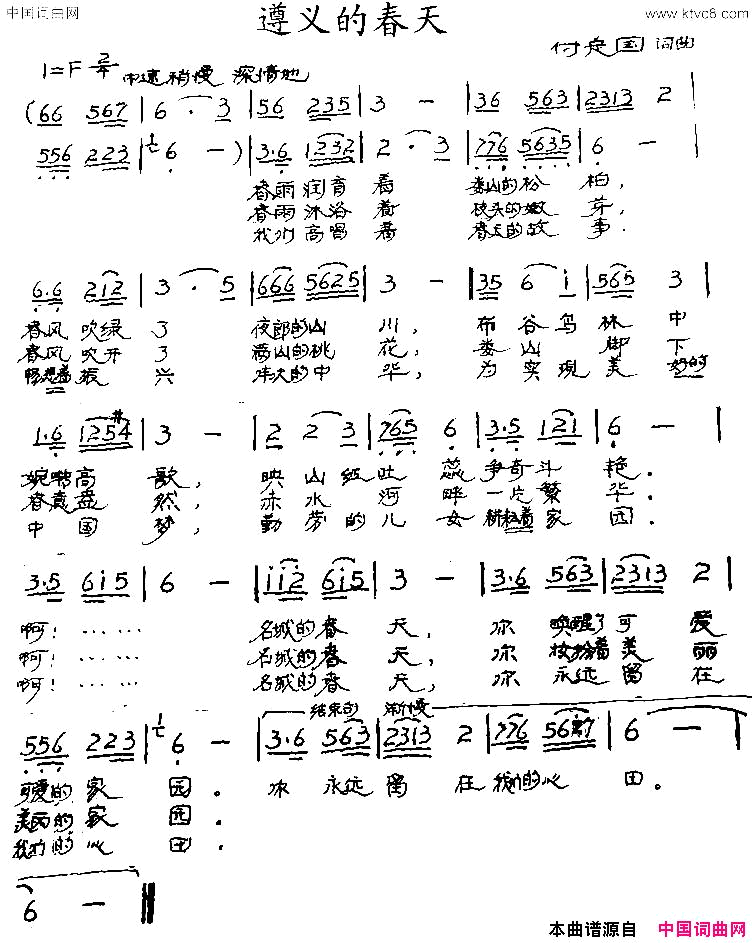 中国词曲网
遵义的春天
www.ktvc6.com
付定国 词曲
1=F 2/4 中速稍慢 深情地
(66 567 | 6 · 3 | 56 235 | 3 - | 36 563 | 2313 2 |
556 223 | 6 - ) | 3·6 1232 | 2 · 3 | 776 5635 | 6 - |
春雨润育着 娄山的松柏,
春雨沐浴着 枝头的嫩芽,
我们高唱着 春天的故事,
6·6 212 | 3 · 5 | 666 5625 | 3 - | 35 6 i | 565 3 |
春风吹绿了 夜郎的山川, 布谷鸟林中
春风吹开了 满山的桃花, 娄山脚下
怀想着振兴 的中华, 为实现美好的
1·6 125#4 | 3 - | 2 2 3 | 765 6 | 3·5 121 | 6 - |
婉转高歌, 映山红吐蕊争奇斗艳.
春意盎然, 赤水河畔一片繁华.
中国梦, 勤劳的儿女 家园.
3·5 6i5 | 6 - | ii2 6i5 | 3 - | 3·6 563 | 2313 2 |
啊! …… …… 名城的春天, 你唤醒了可爱
啊! …… …… 名城的春天, 你妆扮着美丽
啊! …… …… 名城的春天, 你永远留在
结束句 渐慢
556 223 | 6 - | 3·6 563 | 2313 2 | 776 567 | 6 - |
可爱的家园. 你永远留在我们的心田.
美丽的家园.
我们的心田.
6 - ‖
本曲谱源自 中国词曲网